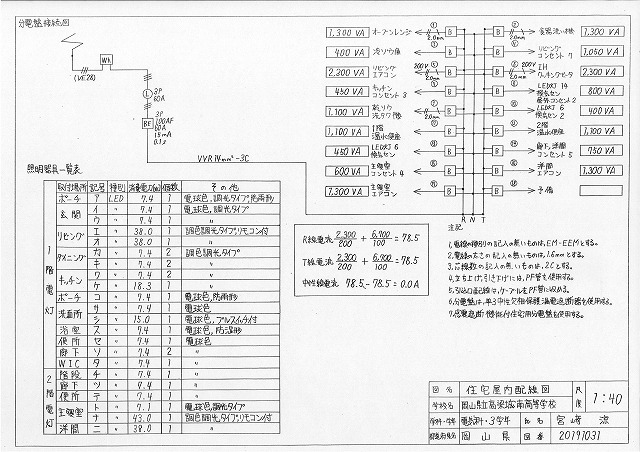 分電盤接続図
Wh
(VE28)
3P
60A
3P
100AF
60A
15mA
0.1s
BE
VVR14mm²-3C
1,300 VA オーブンレンジ
2.0mm
400 VA
2,200 VA リビングエアコン
200V
450 VA キッチンコンセント3
1,100 VA
1,100 VA 1階温水便座
450 VA LEDX5 6 換気セン
600 VA 主寝室コンセント4
1,300 VA 主寝室エアコン
食器洗い機 1,300 VA
2.0mm
リビングコンセント7 1,050 VA
200V
IHクッキングヒータ 2,300 VA
800 VA
400 VA
2階温水便座 1,100 VA
廊下,洋間コンセント5 750 VA
洋間エアコン 1,300 VA
予備
R N T
R線電流 2,300/200 + 6,700/100 = 78.5
T線電流 2,300/200 + 6,700/100 = 78.5
中性線電流 78.5-78.5=0.0A
注記
1,電線の種別の記入の無いものは,EM-EEFとする。
2,電線の太さの記入の無いものは,1.6mmとする。
3,芯線数の記入の無いものは,2Cとする。
4,立ち上げ,引き下げには,PF管を使用する。
5,引込口配線は,ケーブルをPF管に収める。
6,分電盤は,単3中性欠相保護漏電遮断器を使用する。
7,感震遮断機能付住宅用分電盤を使用する。
照明器具一覧表
取付場所 記号 種別 消費電力(W) 個数 その他
1階電灯
ポーチ ア LED 7.4 1 電球色,調光タイプ,防雨形
玄関 イ 〃 7.4 1 電球色,調光タイプ
ウ 〃 7.4 1 〃
リビング エ 〃 38.0 1 調色調光タイプ,リモコン付
オ 〃 38.0 1 〃
ダイニング カ 〃 7.4 2 調色調光タイプ
キ 〃 7.4 2 〃
キッチン ク 〃 7.4 2 〃
ケ 〃 18.3 1 〃
ポーチ コ 〃 7.4 1 電球色,防雨形
洗面所 サ 〃 7.4 1 電球色
シ 〃 15.0 1 電球色,プルスイッチ付
浴室 ス 〃 7.4 1 電球色,防湿形
便所 セ 〃 7.4 1 電球色
廊下 ソ 〃 7.4 2 〃
WIC タ 〃 7.4 1 〃
2階電灯
階段 チ 〃 7.4 1 〃
廊下 ツ 〃 7.4 1 〃
便所 テ 〃 7.4 1 〃
主寝室 ト 〃 7.1 1 電球色,調光タイプ
ナ 〃 43.0 1 調色調光タイプ,リモコン付
洋間 ニ 〃 38.0 1 〃
図名 住宅屋内配線図 尺度 1:40
学校名 岡山県立高梁城南高等学校
学科・学年 電気科・3学年 氏名 宮﨑 涼
都道府県名 岡山県 図番 20191031